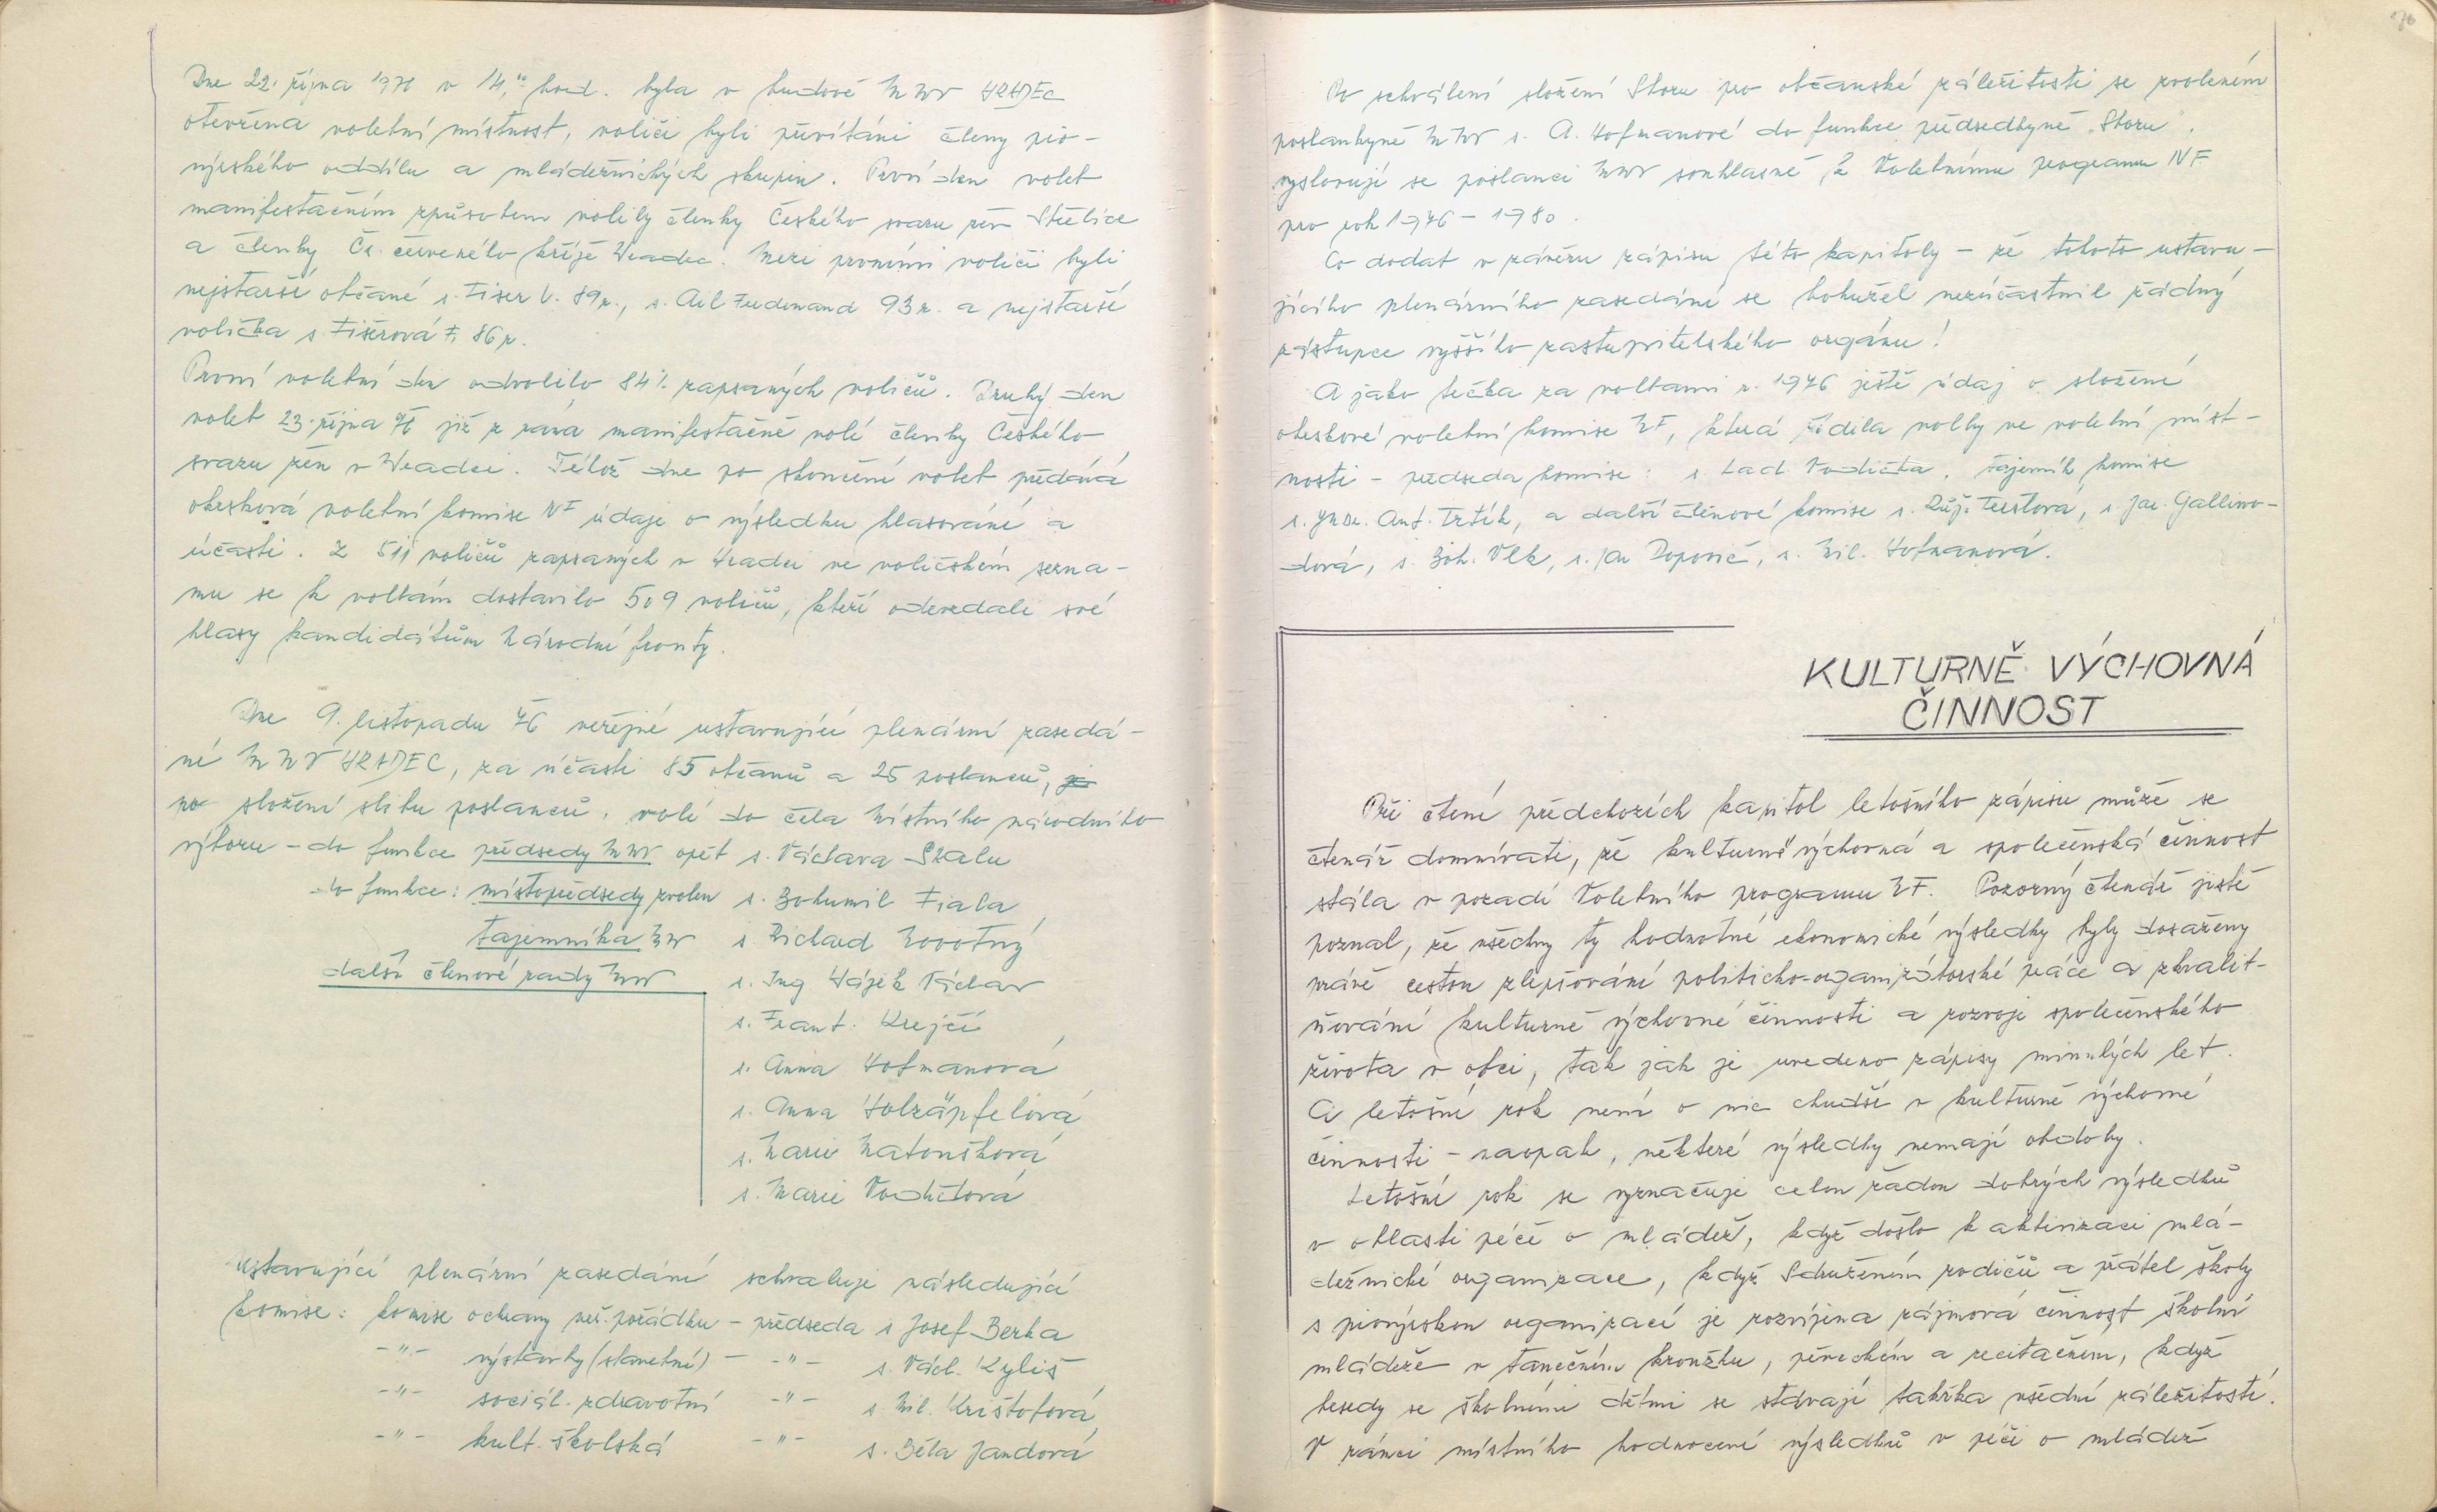 Dne 22. října 1976 v 14,°° hod. byla v budově MNV HRADEC
otevřena volební místnost, voliči byli přivítáni členy pio-
nýrského oddílu a mládežnických skupin. První den voleb
manifestačním způsobem volily členky Českého svazu žen Střelice
a členky Čs. červeného kříže Hradec. Mezi prvními voliči byli
nejstarší občané s. Fišer V. 89 r., s. Ail Ferdinand 93 r. a nejstarší
volička s. Fišerová F. 86 r.
První volební den odvolilo 84% zapsaných voličů. Druhý den
voleb 23. října 76 již z rána manifestačně volí členky Českého
svazu žen v Hradci. Téhož dne po skončení voleb předává
okrsková volební komise NF údaje o výsledku hlasování a
účasti. Z 511 voličů zapsaných v Hradci ve voličském sezna-
mu se k volbám dostavilo 509 voličů, kteří odevzdali své
hlasy kandidátům Národní fronty.
Dne 9. listopadu 76 veřejné ustavující plenární zasedá-
ní MNV HRADEC, za účasti 85 občanů a 25 poslanců,
po složení slibu poslanců, volí do čela Místního národního
výboru - do funkce předsedy MNV opět s. Václava Skalu
do funkce: místopředsedy zvolen s. Bohumil Fiala
tajemníka MNV s. Richard Novotný
další členové rady MNV s. Ing Hájek Václav
s. Frant. Krejčí
s. Anna Hofmanová
s. Anna Holzäpfelová
s. Marie Matoušková
s. Marie Vodičková
Ustavující plenární zasedání schvaluje následující
komise: komise ochrany veř. pořádku - předseda s Josef Berka
-"- výstavby (stavební) - -"- s. Václ. Kyliš
-"- sociál. zdravotní -"- s. Mil. Krištofová
-"- kult. školská -"- s. Běla Jandová
76
Po schválení složení Sboru pro občanské záležitosti se zvolením
poslankyně MNV s. A. Hofmanové do funkce předsedkyně "Sboru",
vyslovují se poslanci MNV souhlasně k Volebnímu programu NF
pro rok 1976 - 1980.
Co dodat v závěru zápisu této kapitoly - že tohoto ustavu-
jícího plenárního zasedání se bohužel nezúčastnil žádný
zástupce vyššího zastupitelského orgánu!
A jako tečka za volbami r. 1976 ještě údaj o složení
okrskové volební komise NF, která řídila volby ve volební míst-
nosti - předseda komise: s. Lad. Vodička, tajemník komise
s. JUDr. Ant. Trtík, a další členové komise s. Růž. Terstová, s Jar. Gallino-
dová, s. Boh. Vlk, s. Jar Popovič, s. Mil. Hofmanová.
KULTURNĚ VÝCHOVNÁ
ČINNOST
Při čtení předchozích kapitol letošního zápisu může se
čtenář domnívati, že kulturně výchovná a společenská činnost
stála v pozadí Volebního programu NF. Pozorný čtenář jistě
poznal, že všechny ty hodnotné ekonomické výsledky byly dosaženy
právě cestou zlepšování politicko-organizátorské práce a zkvalit-
ňování kulturně výchovné činnosti a rozvoje společenského
života v obci, tak jak je uvedeno zápisy minulých let.
Ci letošní rok není o nic chudší v kulturně výchovné
činnosti - naopak, některé výsledky nemají obdoby.
Letošní rok se vyznačuje celou řadou dobrých výsledků
v oblasti péče o mládež, když došlo k aktivizaci mlá-
dežnické organizace, když Sdružením rodičů a přátel školy
s pionýrskou organizací je rozvíjena zájmová činnost školní
mládeže v tanečním kroužku, pěveckém a recitačním, když
besedy se školními dětmi se stávají takřka všední záležitostí.
V rámci místního hodnocení výsledků v péči o mládež